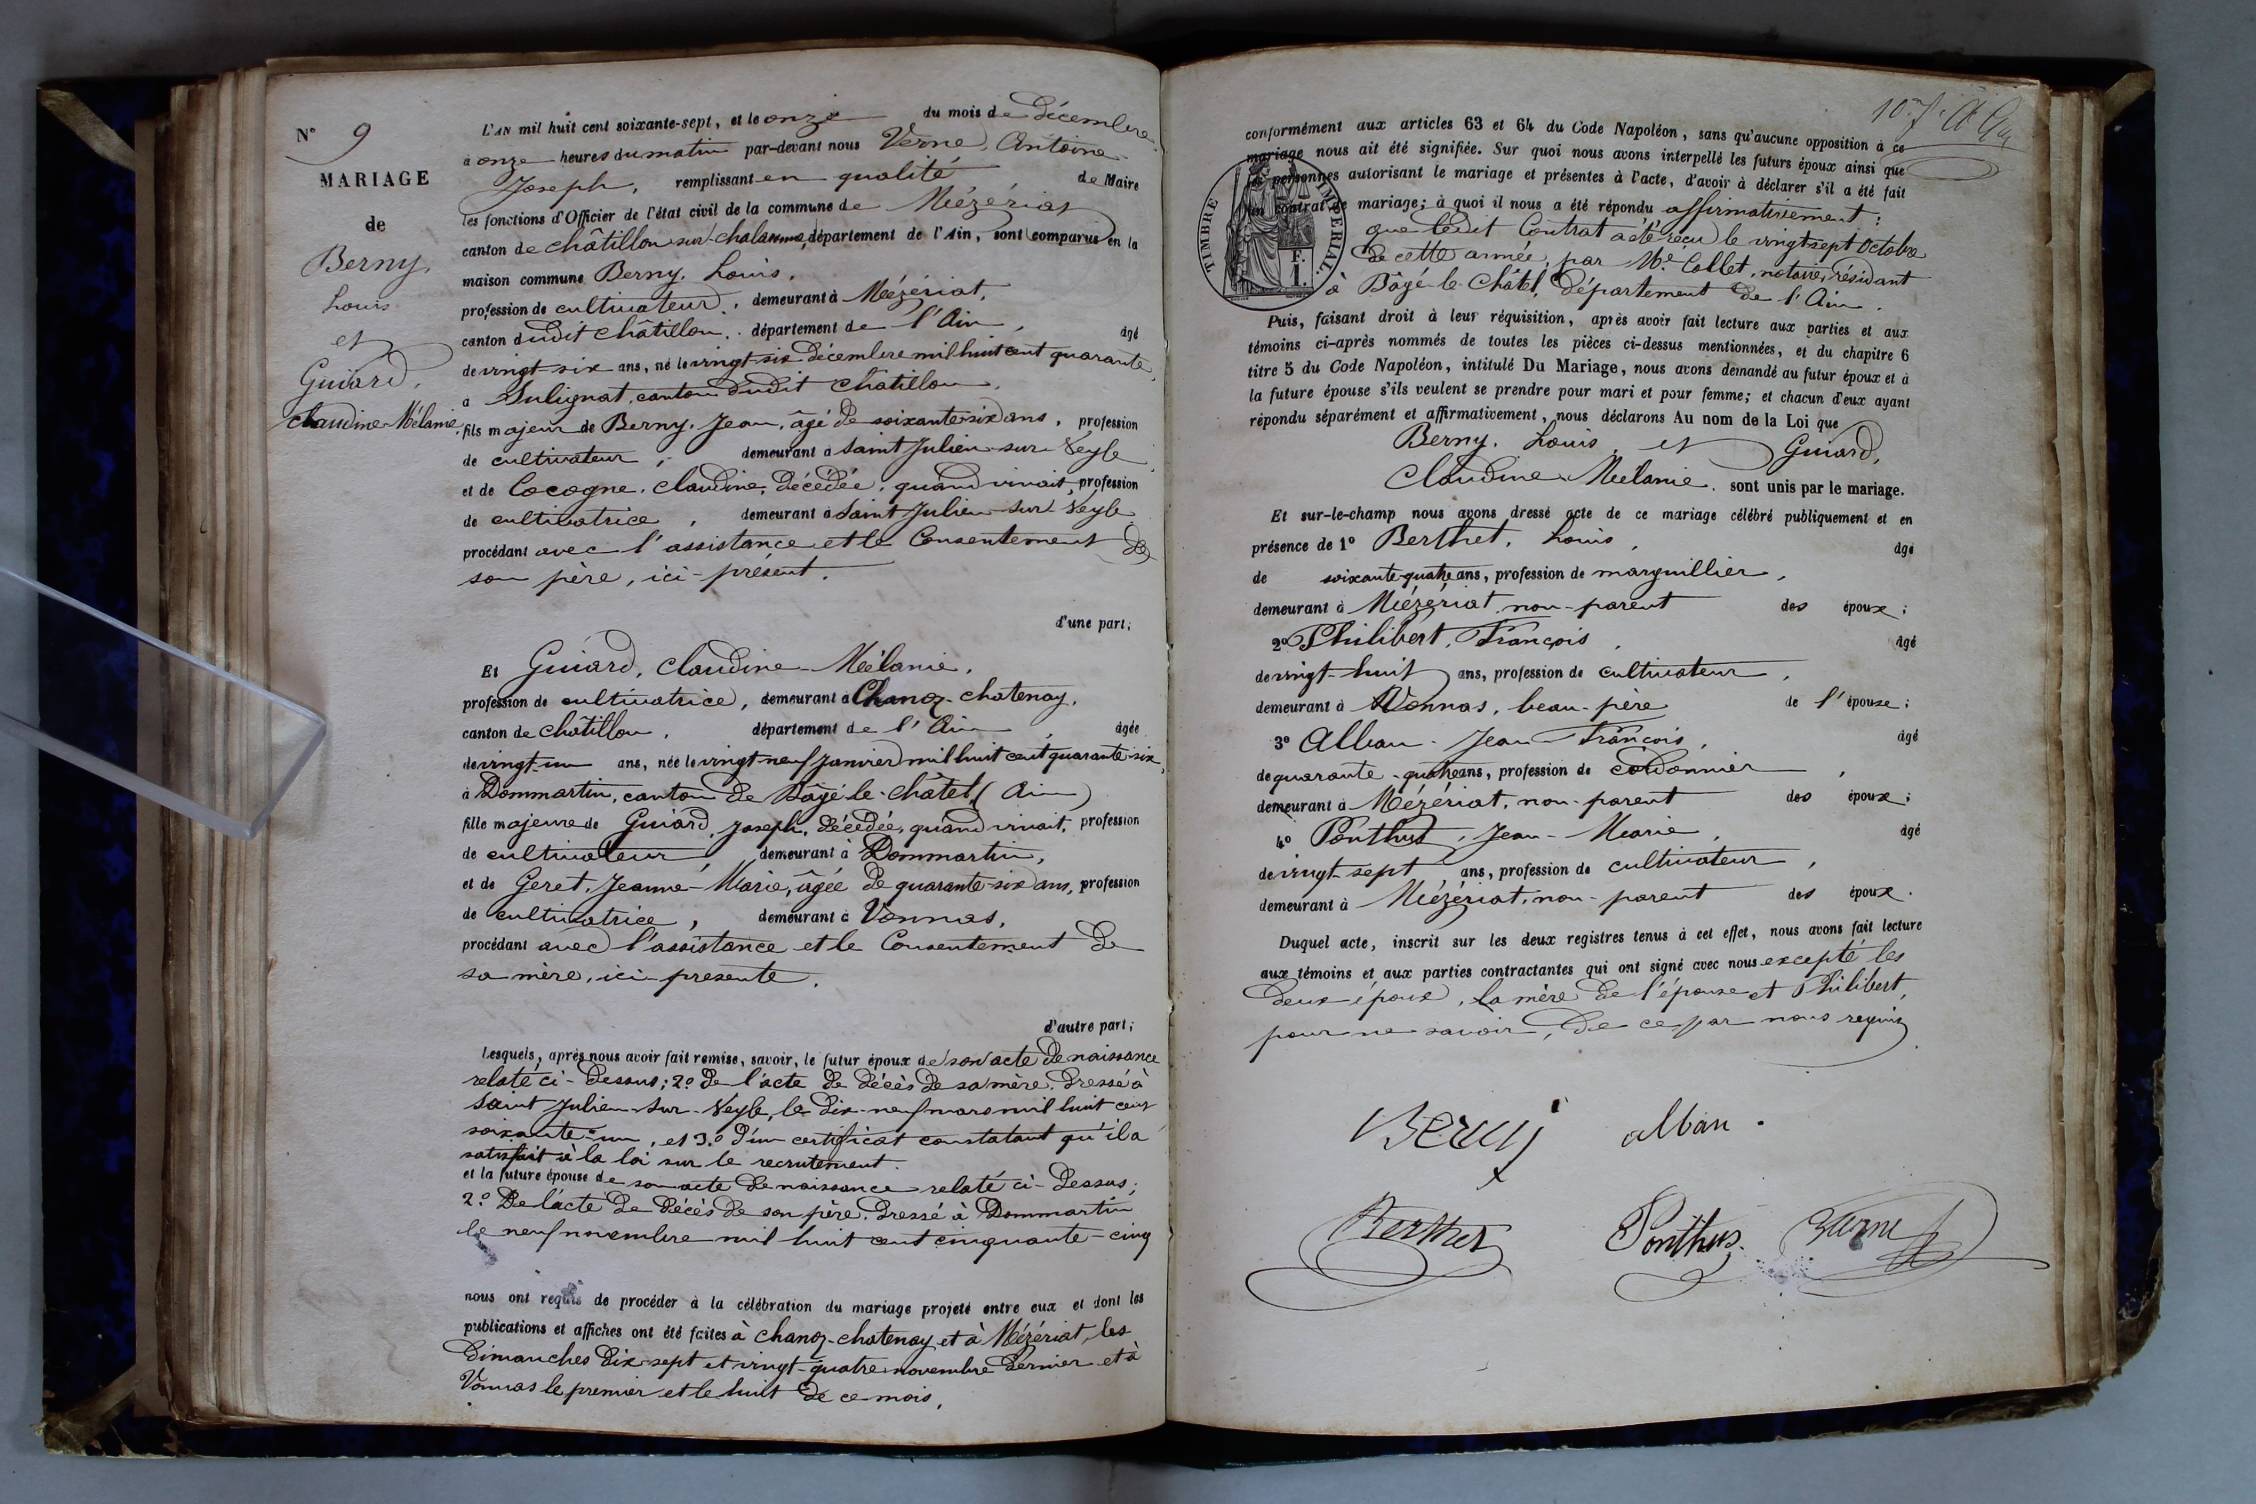 N° 9
MARIAGE
de
Berny,
Louis
et
Guiard,
Claudine-Mélanie.
L'AN mil huit cent soixante-sept, et le onze du mois de Décembre
à onze heures du matin par-devant nous Verne, Antoine-
Joseph, remplissant en qualité de Maire
les fonctions d'Officier de l'état civil de la commune de Mézériat
canton de châtillon-sur-chalaronne, département de l'Ain, sont comparus en la
maison commune Berny, Louis,
profession de cultivateur, demeurant à Mézériat,
canton dudit châtillon, département de l'Ain, âgé
de vingt-six ans, né le vingt-six Décembre mil huit cent quarante,
à Sulignat, canton dudit châtillon,
fils majeur de Berny, Jean, âgé de soixante-six ans, profession
de cultivateur, demeurant à Saint Julien-sur-Veyle
et de Cocogne, Claudine, décédée, quand vivait, profession
de cultivatrice, demeurant à Saint Julien-sur-Veyle
procédant avec l'assistance et le Consentement de
son père, ici-présent.
d'une part;
Et Guiard, Claudine-Mélanie,
profession de cultivatrice, demeurant à Chanoz-chatenay,
canton de châtillon, département de l'Ain, âgée
de vingt-un ans, née le vingt-neuf Janvier mil huit cent quarante-six,
à Dommartin, canton de Bâgé-le-châtel, (Ain)
fille majeure de Guiard, Joseph, décédée, quand vivait, profession
de cultivateur, demeurant à Dommartin,
et de Geret, Jeanne-Marie, âgée de quarante-six ans, profession
de cultivatrice, demeurant à Vonnas,
procédant avec l'assistance et le Consentement de
sa mère, ici-presente.
d'autre part;
Lesquels, après nous avoir fait remise, savoir, le futur époux de son acte de naissance
relaté ci-dessus; 2° de l'acte de décès de sa mère, dressé à
Saint Julien-sur-Veyle, le dix-neuf mars mil huit cent
soixante-un, et 3° d'un certificat constatant qu'il a
satisfait à la loi sur le recrutement.
et la future épouse de son acte de naissance relaté ci-dessus;
2° De l'acte de décès de son père, dressé à Dommartin
le neuf novembre mil huit cent cinquante-cinq
nous ont requis de procéder à la célébration du mariage projeté entre eux et dont les
publications et affiches ont été faites à Chanoz-chatenay et à Mézériat, les
Dimanches dix-sept et vingt-quatre novembre dernier et à
Vonnas le premier et le huit de ce mois,
107
conformément aux articles 63 et 64 du Code Napoléon, sans qu'aucune opposition à ce
mariage nous ait été signifiée. Sur quoi nous avons interpellé les futurs époux ainsi que
personnes autorisant le mariage et présentes à l'acte, d'avoir à déclarer s'il a été fait
un contrat de mariage; à quoi il nous a été répondu affirmativement;
que ledit Contrat a été reçu le vingt-sept Octobre
de cette année, par Me Collet, notaire, résidant
à Bâgé-le-Châtel, Département de l'Ain.
TIMBRE IMPERIAL
1 F.
Puis, faisant droit à leur réquisition, après avoir fait lecture aux parties et aux
témoins ci-après nommés de toutes les pièces ci-dessus mentionnées, et du chapitre 6
titre 5 du Code Napoléon, intitulé Du Mariage, nous avons demandé au futur époux et à
la future épouse s'ils veulent se prendre pour mari et pour femme; et chacun d'eux ayant
répondu séparément et affirmativement, nous déclarons Au nom de la Loi que
Berny, Louis, et Guiard,
Claudine-Mélanie, sont unis par le mariage.
Et sur-le-champ nous avons dressé acte de ce mariage célébré publiquement et en
présence de 1° Berthet, Louis, âgé
de soixante-quatre ans, profession de marguillier,
demeurant à Mézériat, non-parent des époux;
2° Philibert, François, âgé
de vingt-huit ans, profession de cultivateur,
demeurant à Vonnas, beau-père de l'épouse;
3° Alban, Jean-François, âgé
de quarante-quatre ans, profession de cordonnier,
demeurant à Mézériat, non-parent des époux;
4° Ponthus, Jean-Marie, âgé
de vingt-sept ans, profession de cultivateur,
demeurant à Mézériat, non-parent des époux.
Duquel acte, inscrit sur les deux registres tenus à cet effet, nous avons fait lecture
aux témoins et aux parties contractantes qui ont signé avec nous excepté les
deux époux, la mère de l'épouse et Philibert,
pour ne savoir, de ce par nous requis
Berny alban.
Berthet Ponthus. Verne